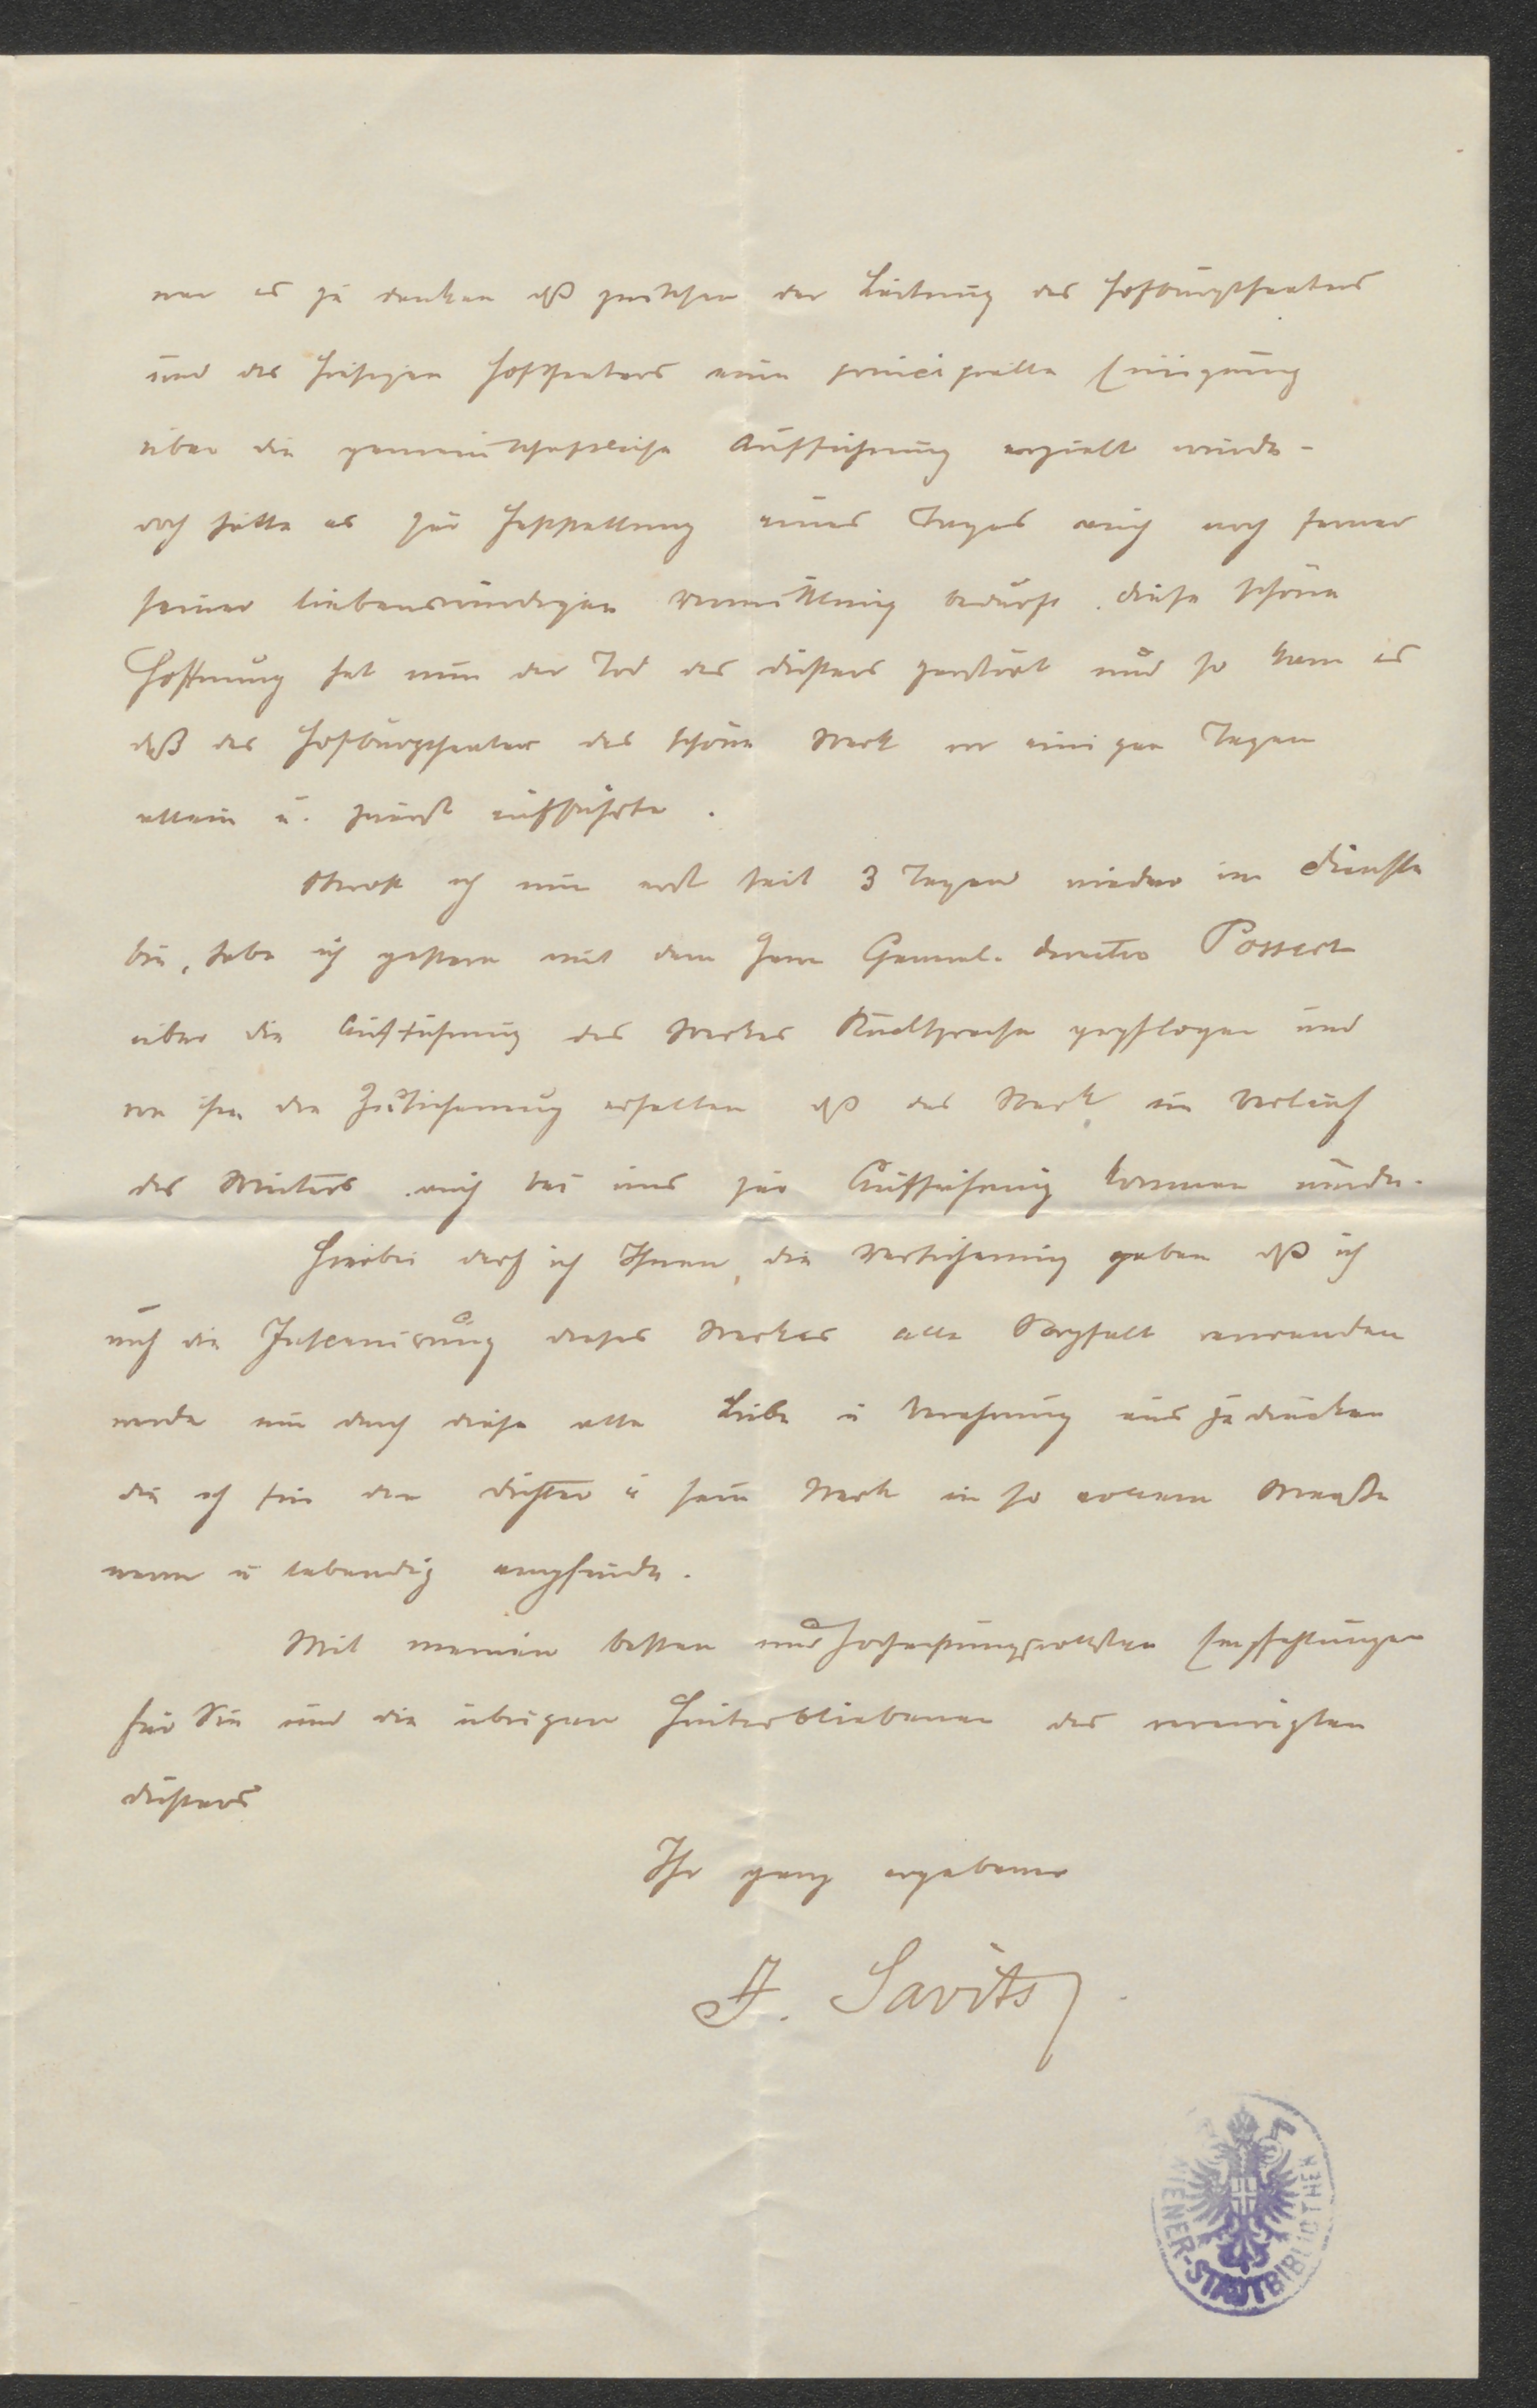 war es zu denken dß zwischen der Leitung des Hofburgtheaters
und des hiesigen Hoftheaters eine principielle Einigung
über die gemeinschaftliche Aufführung erzielt würde –
doch hätte es zur Festhaltung eines Tages auch noch ferner
seiner liebenswürdigen Vermittlung bedurft. Diese schöne
Hoffnung hat nun der Tod des Dichters zerstört und so kam es
daß das Hofburgtheater das schöne Werk vor einigen Tagen
allein u. zuerst aufführte.
ich nun erst seit 3 Tagen wieder im Dienste
bin, habe ich gestern mit dem Herrn General-director Possart
über die Aufführung des Werkes Rücksprache gepflogen und
von ihm die Zusicherung erhalten dß das Werk im Verlauf
des Winters auch bei uns zur Aufführung kommen würde.
Hierbei darf ich Ihnen die Versicherung geben dß ich
auf die Inscenirung dieses Werkes alle Sorgfalt verwenden
werde um durch diese alle Liebe u Verehrung auszudrücken
die ich für den Dichter u sein Werk in so vollem Maaße
warm u lebendig empfinde.
Mit meinen besten und hochachtungsvollsten Empfehlungen
für Sie und die übrigen Hinterbliebenen des verewigten
Dichters
Ihr ganz ergebener
J. Savits
WIENER-STADTBIBLIOTHEK